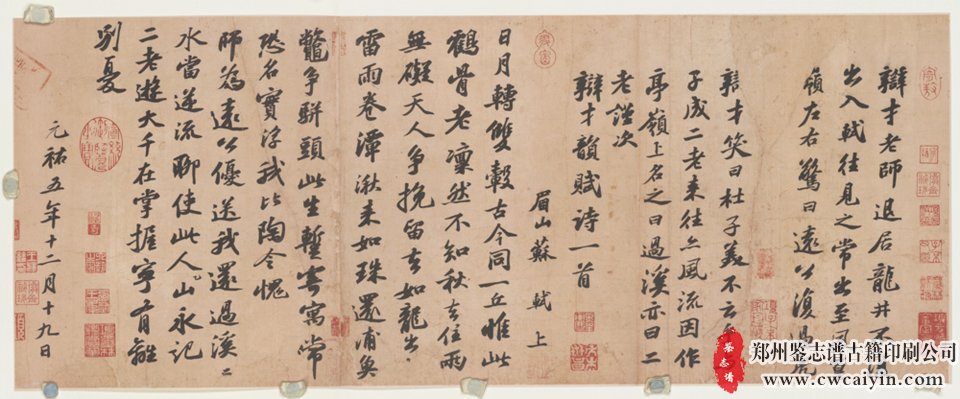 辯才老師退居龍井不復
出入軾往見之常出至風
嶺左右驚曰遠公復過虎
辯才笑曰杜子美不云乎與
子成二老来往亦風流因作
亭嶺上名之曰過溪亦曰二
老謹次
辯才韻賦詩一首
眉山蘇軾上
日月轉雙轂古今同一丘惟此
鶴骨老凜然不知秋去住兩
無礙天人爭挽留去如龍出
雷雨卷潭湫来如珠還浦魚
鼈爭駢頭此生暫寄寓常
恐名實浮我比陶令愧
師為遠公優送我還過溪溪
水當逆流聊使此人山永記
二老遊大千在掌握寧有離
別憂
元祐五年十二月十九日
鉴志谱
郑州鉴志谱古籍印刷公司
www.cwcaiyin.com